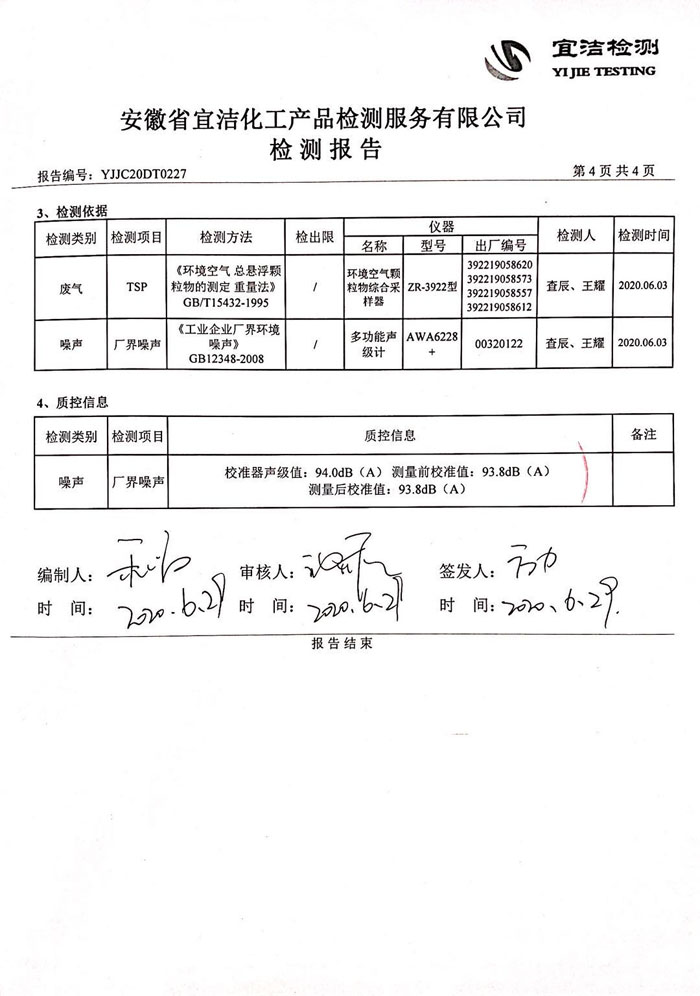 宜洁检测
YI JIE TESTING
安徽省宜洁化工产品检测服务有限公司
检测报告
报告编号：YJJC20DT0227
第4页 共4页
3、检测依据
检测类别 检测项目 检测方法 检出限 仪器 检测人 检测时间
名称 型号 出厂编号
废气 TSP 《环境空气 总悬浮颗粒物的测定 重量法》GB/T15432-1995 / 环境空气颗粒物综合采样器 ZR-3922型 392219058620 392219058573 392219058557 392219058612 查辰、王耀 2020.06.03
噪声 厂界噪声 《工业企业厂界环境噪声》GB12348-2008 / 多功能声级计 AWA6228+ 00320122 查辰、王耀 2020.06.03
4、质控信息
检测类别 检测项目 质控信息 备注
噪声 厂界噪声 校准器声级值：94.0dB（A） 测量前校准值：93.8dB（A）
测量后校准值：93.8dB（A）
编制人： 审核人： 签发人：
时 间：2020.6.29 时 间：2020.6.29 时 间：2020.6.29.
报告结束